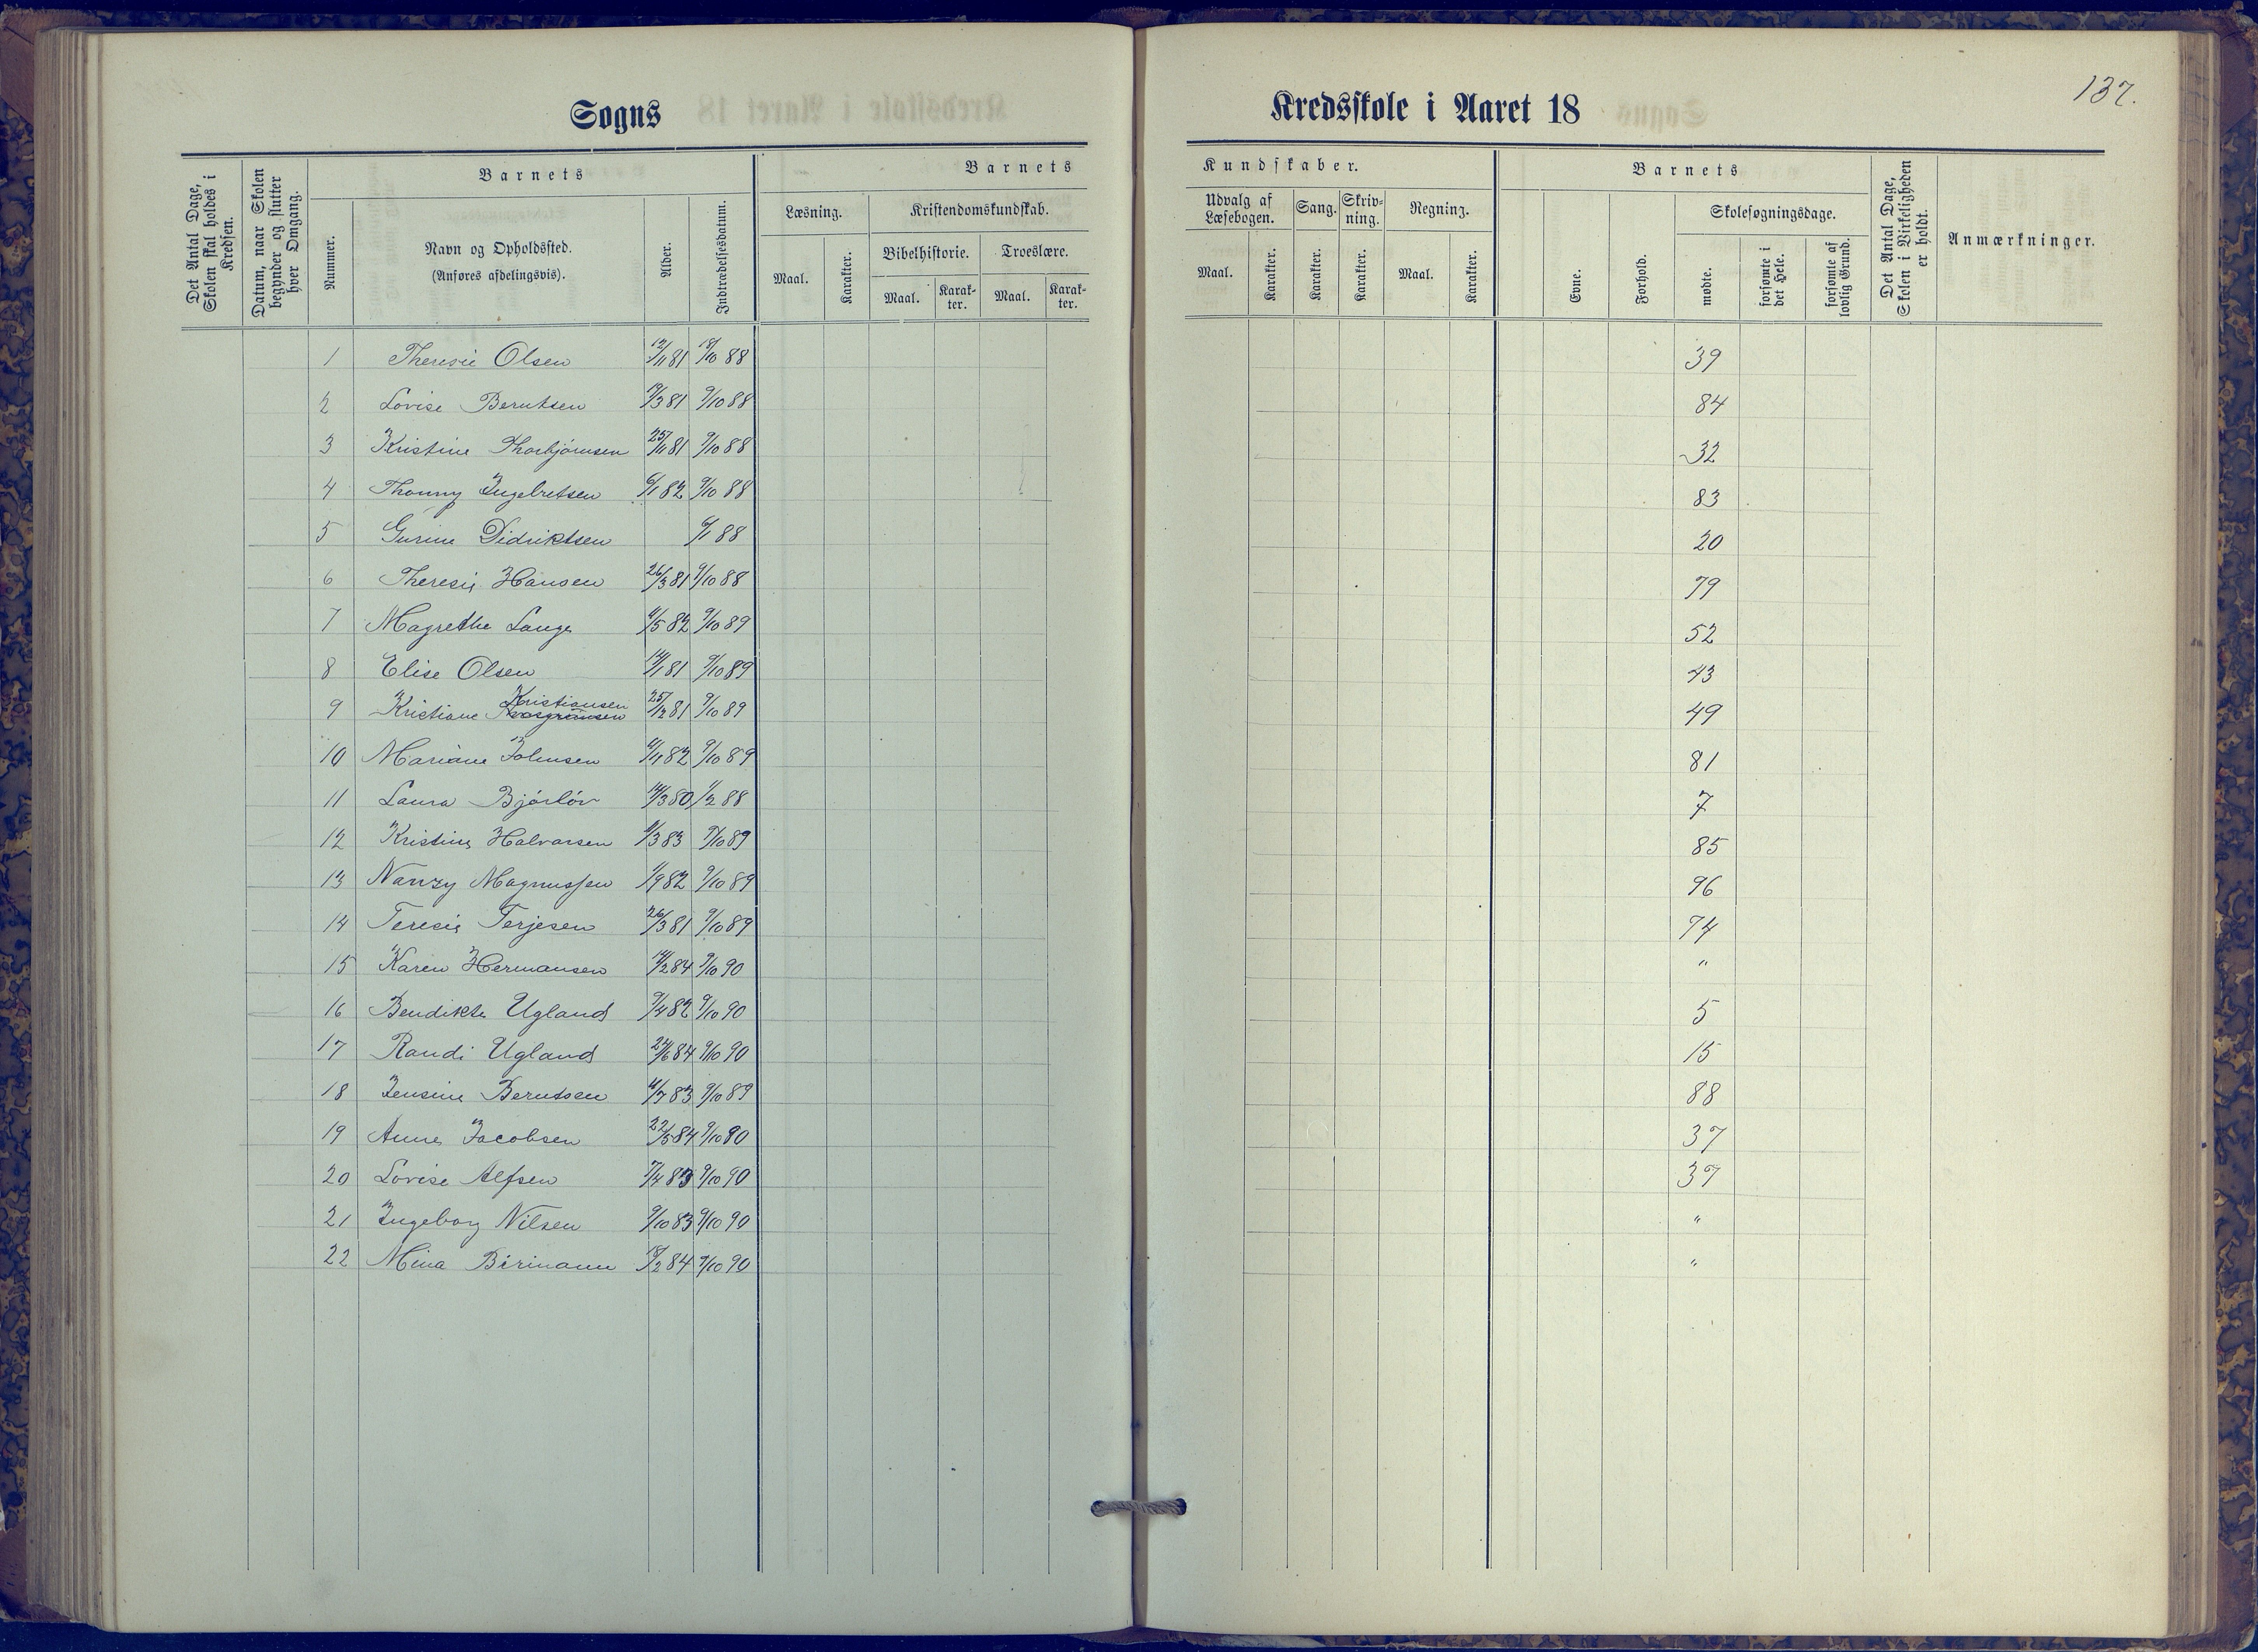 137.
Sogns Kredsskole i Aaret 18
Det Antal Dage, Skolen skal holdes i Kredsen.
Datum, naar Skolen begynder og slutter hver Omgang.
Barnets
Nummer.
Navn og Opholdssted.
(Anføres afdelingsvis).
Alder.
Indtrædelsesdatum.
Barnets Kundskaber.
Læsning.
Maal.
Karakter.
Kristendomskundskab.
Bibelhistorie.
Maal.
Karak-
ter.
Troeslære.
Maal.
Karak-
ter.
Udvalg af
Læsebogen.
Maal.
Karakter.
Sang.
Karakter.
Skriv-
ning.
Karakter.
Regning.
Maal.
Karakter.
Barnets
Evne.
Forhold.
Skolesøgningsdage.
mødte.
forsømte i det Hele.
forsømte af lovlig Grund.
Det Antal Dage, Skolen i Virkeligheden er holdt.
Anmærkninger.
1 Theresie Olsen 12/11 81 18/10 88 39
2 Lovise Berntsen 19/3 81 9/10 88 84
3 Kristine Thorbjörnsen 25/11 81 9/10 88 32
4 Thonny Ingebretsen 6/1 82 9/10 88 83
5 Gurine Didriktsen 6/1 88 20
6 Theresie Hansen 26/3 81 9/10 88 79
7 Magrethe Lange 4/5 82 9/10 89 52
8 Elise Olsen 14/1 81 9/10 89 43
9 Kristiane Kristiansen 25/12 81 9/10 89 49
10 Mariane Johnsen 4/11 82 9/10 89 81
11 Laura Bjórlóv 14/3 80 1/2 88 7
12 Kristine Halvorsen 4/3 83 9/10 89 85
13 Nanzy Magnussen 1/9 82 9/10 89 96
14 Teresie Terjesen 26/3 81 9/10 89 74
15 Karen Hermansen 14/2 84 9/10 90 "
16 Bendikte Ugland 9/4 82 9/10 90 5
17 Randi Ugland 24/6 84 9/10 90 15
18 Jensine Berntsen 4/7 83 9/10 89 88
19 Anne Jacobsen 22/5 84 9/10 90 37
20 Lovise Alfsen 7/4 83 9/10 90 37
21 Ingeborg Nilsen 9/10 83 9/10 90 "
22 Mina Birmann 18/2 84 9/10 90 "